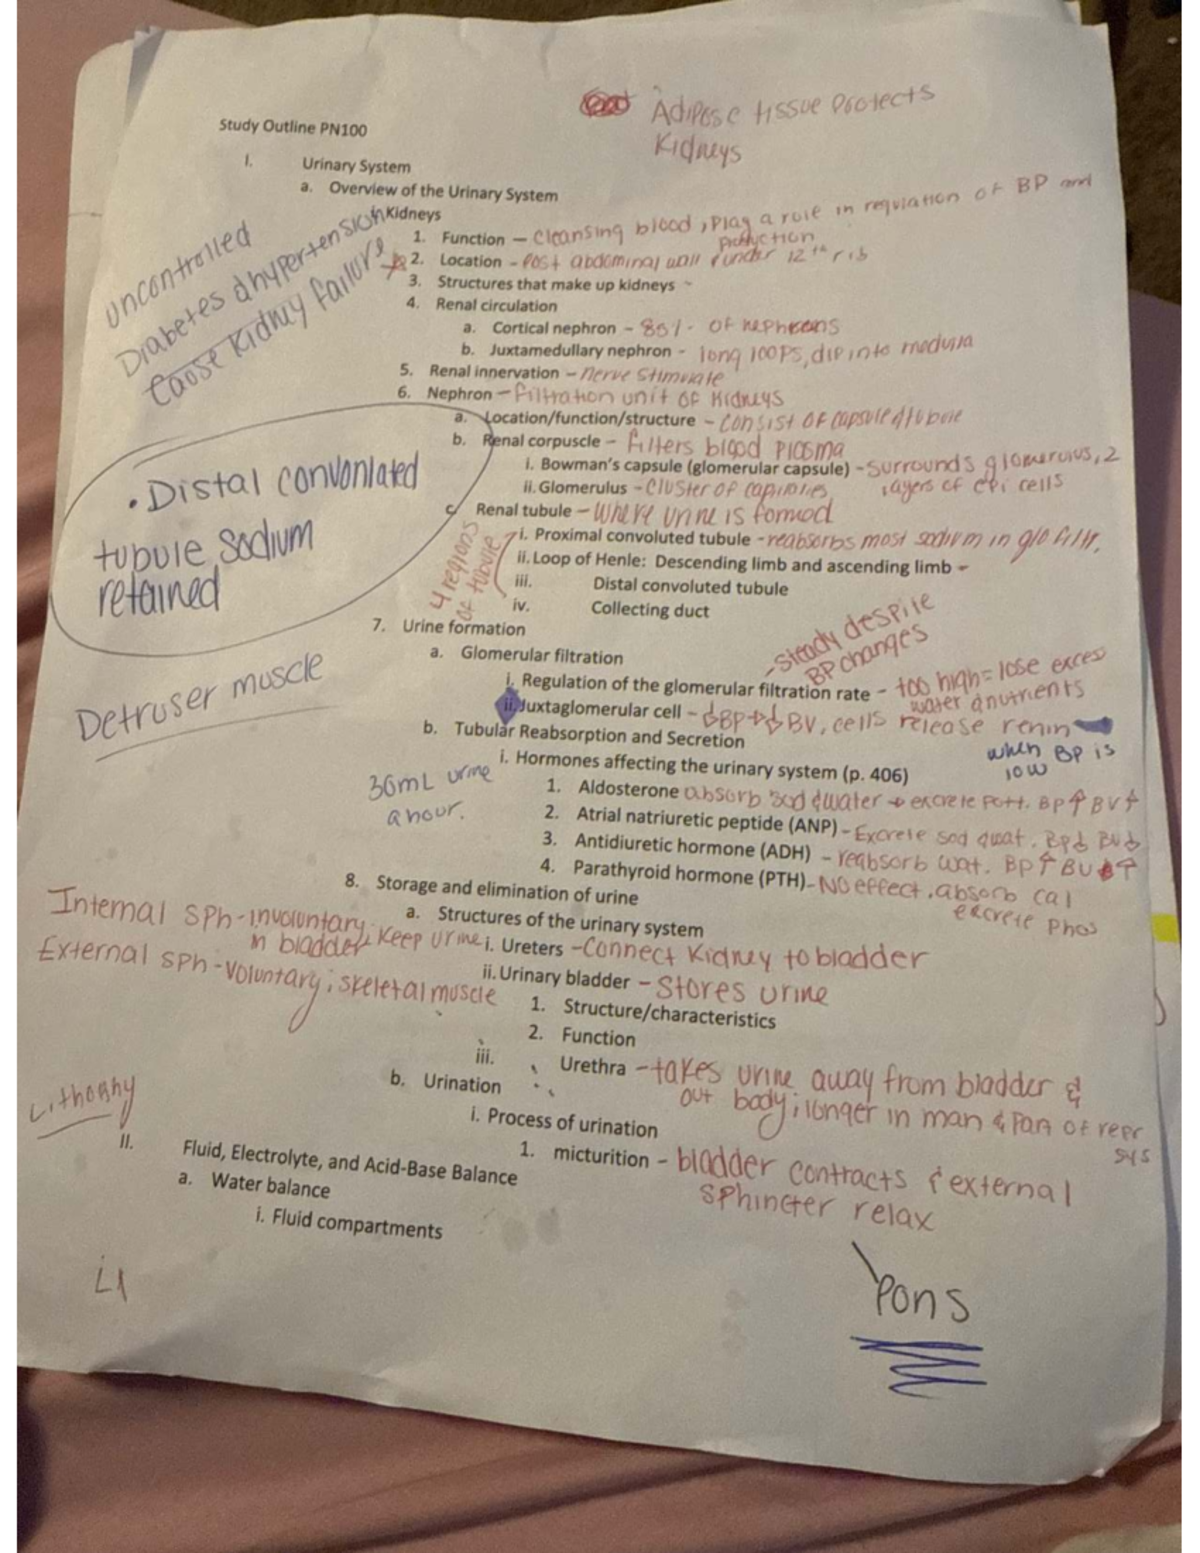 Adipose tissue protects
Kidneys
Study Outline PN100
I. Urinary System
a. Overview of the Urinary System
i. Kidneys
uncontrolled
Diabetes & hypertension
cause Kidney failure
1. Function – cleansing blood, play a role in regulation of BP and
production
2. Location - post abdominal wall under 12th rib
3. Structures that make up kidneys -
4. Renal circulation
a. Cortical nephron - 85% - of nephrons
b. Juxtamedullary nephron - long loops, dip into medulla
5. Renal innervation – nerve stimulate
6. Nephron – filtration unit of Kidneys
a. Location/function/structure - consist of capsule & tubule
b. Renal corpuscle - filters blood plasma
i. Bowman's capsule (glomerular capsule) - surrounds glomerulus, 2
layers of epi cells
ii. Glomerulus - cluster of capillaries
• Distal convonlated
tubule sodium
retained
c. Renal tubule – where urine is formed
4 regions
of tubule
i. Proximal convoluted tubule - reabsorbs most sodium in glo filtr.
ii. Loop of Henle: Descending limb and ascending limb -
iii. Distal convoluted tubule
iv. Collecting duct
7. Urine formation
a. Glomerular filtration
- steady despite
BP changes
i. Regulation of the glomerular filtration rate - too high = lose excess
water & nutrients
ii. Juxtaglomerular cell - ↓BP→↓BV, cells release renin
when BP is
low
Detruser muscle
b. Tubular Reabsorption and Secretion
i. Hormones affecting the urinary system (p. 406)
30mL urine
a hour.
1. Aldosterone absorb sod & water → excrete pott. BP↑ BV↑
2. Atrial natriuretic peptide (ANP) - Excrete sod & wat. Bp↓ BV↓
3. Antidiuretic hormone (ADH) - reabsorb wat. Bp↑ BV↑
4. Parathyroid hormone (PTH) - No effect. absorb cal
excrete phos
8. Storage and elimination of urine
a. Structures of the urinary system
Internal sph - involuntary
in bladder keep urine
External sph - voluntary; skeletal muscle
i. Ureters - Connect Kidney to bladder
ii. Urinary bladder - Stores urine
1. Structure/characteristics
2. Function
iii. Urethra - takes urine away from bladder &
out body; longer in man & part of repr
sys
b. Urination
i. Process of urination
1. micturition - bladder contracts & external
sphincter relax
II. Fluid, Electrolyte, and Acid-Base Balance
a. Water balance
i. Fluid compartments
Pons